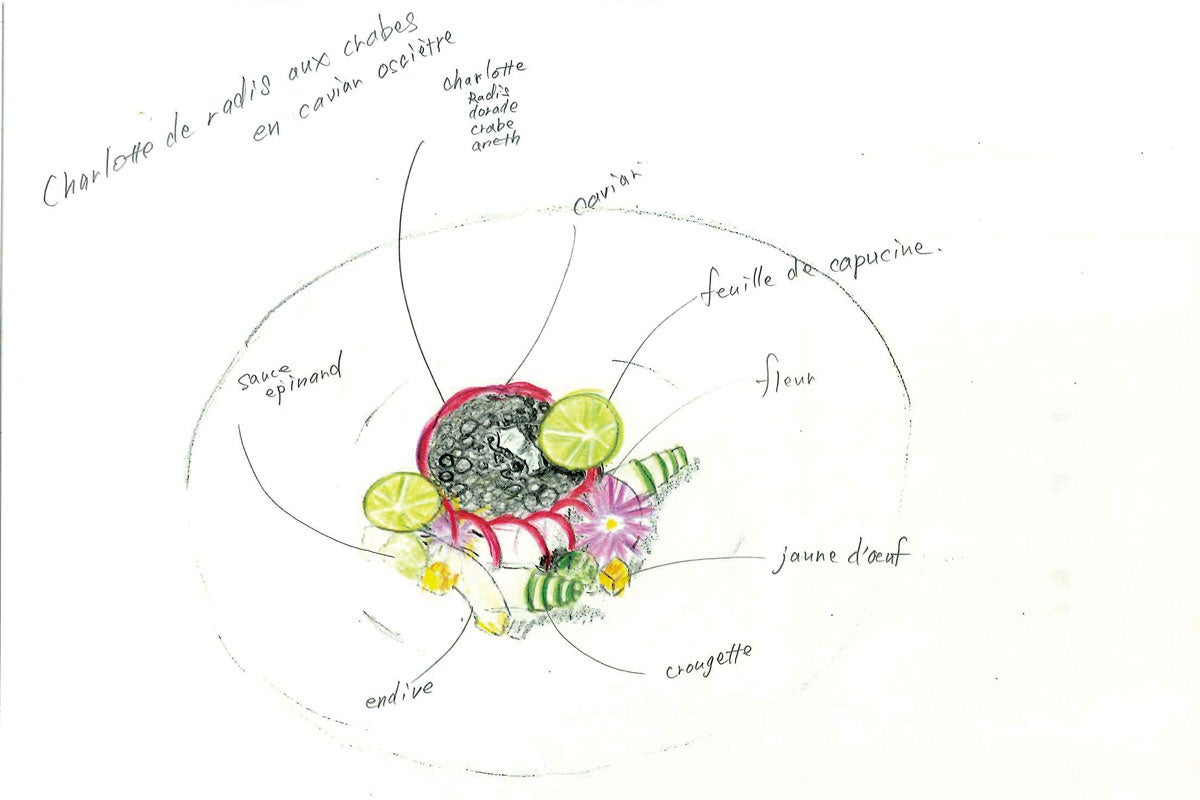 Charlotte de radis aux crabes
en caviar osciètre
charlotte
Radis
dorade
crabe
aneth
caviar
feuille de capucine.
fleur
sauce
epinard
jaune d'oeuf
crougette
endive